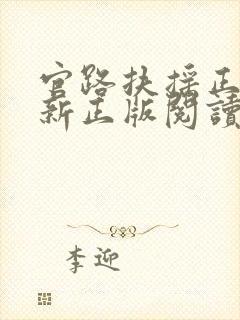 官路扶摇正
新正版閱讀
李迎